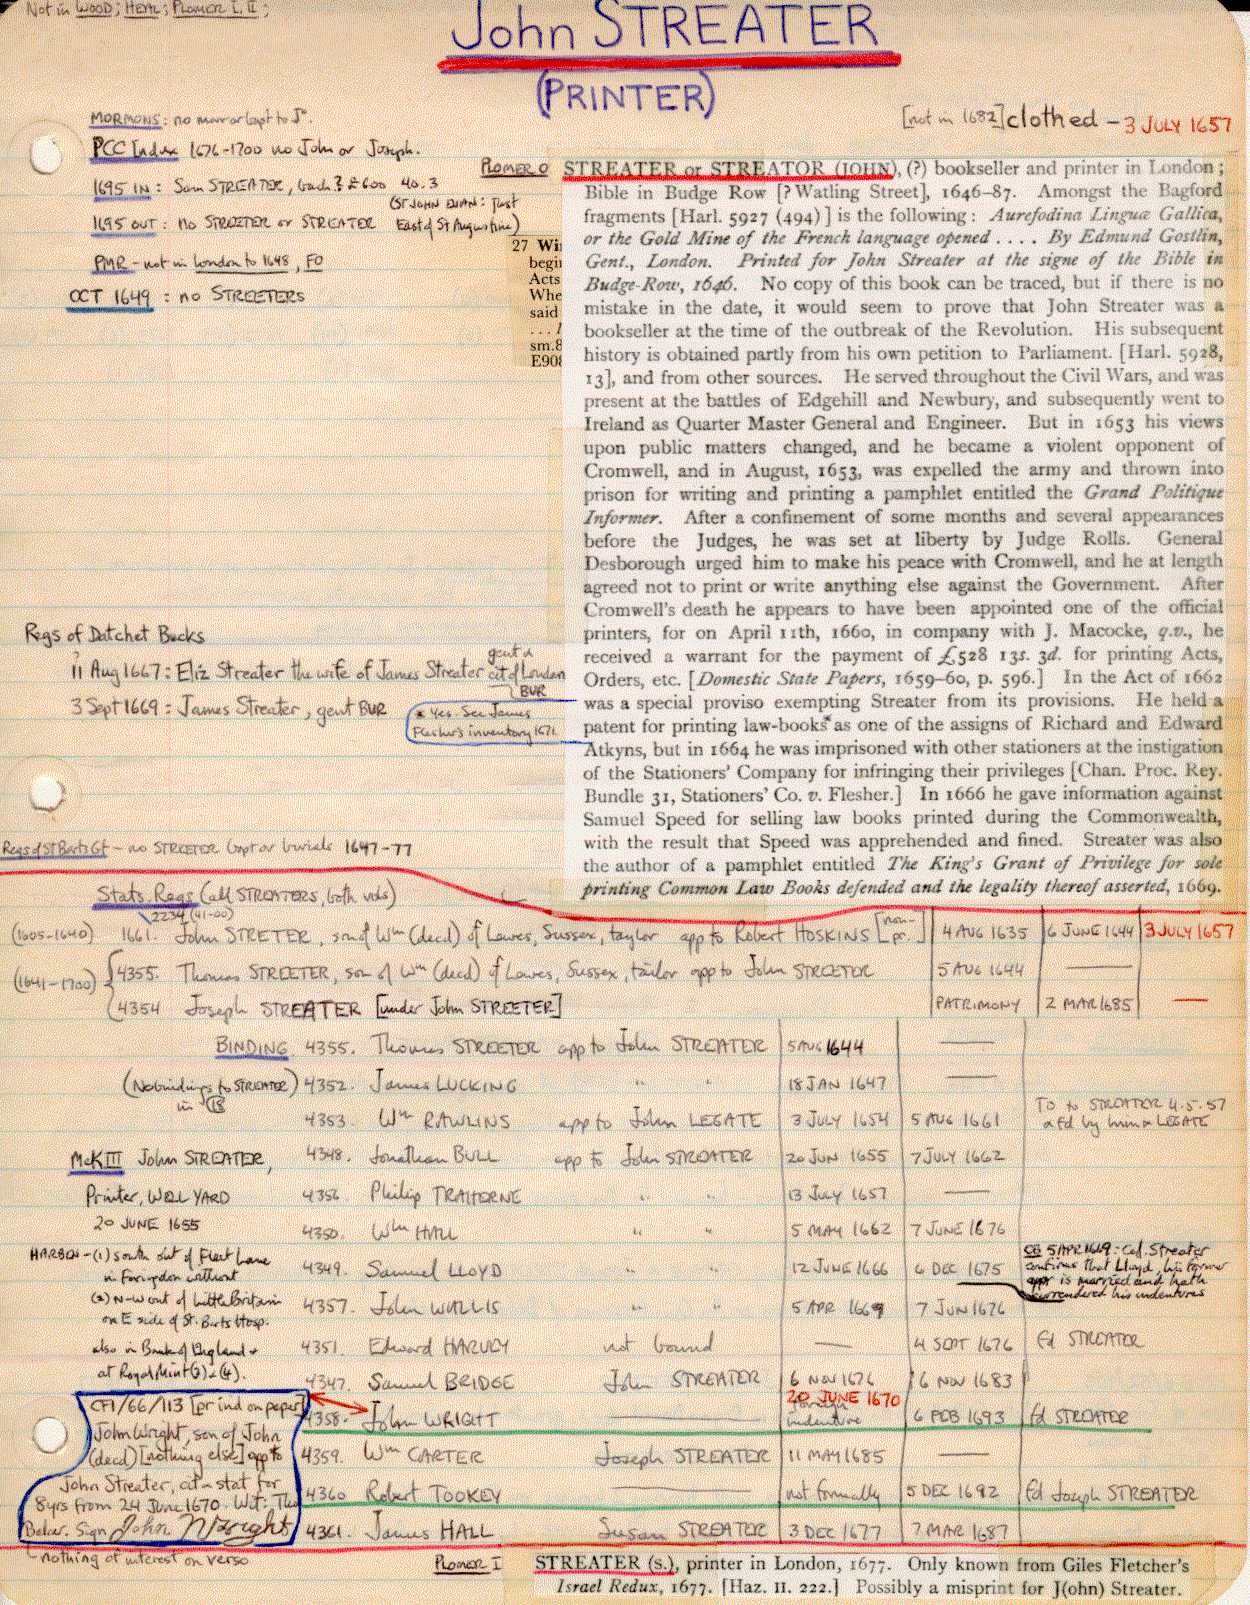 Not in WOOD; HEAL; PLOMER I, II;
John STREATER
(PRINTER)
MORMONS: no marr or bapt to Jo.
[not in 1682] clothed - 3 JULY 1657
PCC Index 1676-1700 no John or Joseph.
1695 IN: Sam STREATER, bach? £600 40.3
(ST JOHN EVAN: just
East of St Augustine)
1695 OUT: no STREETER or STREATER
PMR - not in London to 1648, FO
OCT 1649: no STREETERS
27 Wi
begin
Acts
Whe
said
sm.8
E908
PLOMER O
STREATER or STREATOR (JOHN), (?) bookseller and printer in London;
Bible in Budge Row [? Watling Street], 1646-87. Amongst the Bagford
fragments [Harl. 5927 (494)] is the following: Aurefodina Linguæ Gallica,
or the Gold Mine of the French language opened .... By Edmund Gostlin,
Gent., London. Printed for John Streater at the signe of the Bible in
Budge-Row, 1646. No copy of this book can be traced, but if there is no
mistake in the date, it would seem to prove that John Streater was a
bookseller at the time of the outbreak of the Revolution. His subsequent
history is obtained partly from his own petition to Parliament. [Harl. 5928,
13], and from other sources. He served throughout the Civil Wars, and was
present at the battles of Edgehill and Newbury, and subsequently went to
Ireland as Quarter Master General and Engineer. But in 1653 his views
upon public matters changed, and he became a violent opponent of
Cromwell, and in August, 1653, was expelled the army and thrown into
prison for writing and printing a pamphlet entitled the Grand Politique
Informer. After a confinement of some months and several appearances
before the Judges, he was set at liberty by Judge Rolls. General
Desborough urged him to make his peace with Cromwell, and he at length
agreed not to print or write anything else against the Government. After
Cromwell's death he appears to have been appointed one of the official
printers, for on April 11th, 1660, in company with J. Macocke, q.v., he
received a warrant for the payment of £528 13s. 3d. for printing Acts,
Orders, etc. [Domestic State Papers, 1659-60, p. 596.] In the Act of 1662
was a special proviso exempting Streater from its provisions. He held a
patent for printing law-books* as one of the assigns of Richard and Edward
Atkyns, but in 1664 he was imprisoned with other stationers at the instigation
of the Stationers' Company for infringing their privileges [Chan. Proc. Rey.
Bundle 31, Stationers' Co. v. Flesher.] In 1666 he gave information against
Samuel Speed for selling law books printed during the Commonwealth,
with the result that Speed was apprehended and fined. Streater was also
the author of a pamphlet entitled The King's Grant of Privilege for sole
printing Common Law Books defended and the legality thereof asserted, 1669.
Regs of Datchet Bucks
11 Aug 1667: Eliz Streater the wife of James Streater gent & cit of London
BUR
3 Sept 1669: James Streater, gent BUR
* Yes. See James
Flesher's inventory 1671
Regs of St Barts Gt - no STREETER bapt or burials 1647-77
Stats Regs (all STREATERS, both vols)
2234 (41-00)
(1605-1640) 1661. John STRETER, son of Wm (decd) of Lewes, Sussex, taylor app to Robert HOSKINS [non-pr.] 4 AUG 1635 6 JUNE 1644 3 JULY 1657
(1641-1700) 4355. Thomas STREETER, son of Wm (decd) of Lewes, Sussex, tailor app to John STREETER 5 AUG 1644 —
4354 Joseph STREATER [under John STREETER] PATRIMONY 2 MAR 1685 —
BINDING 4355. Thomas STREETER app to John STREATER 5 AUG 1644 —
(No bindings to STREATER in 13) 4352. James LUCKING " " 18 JAN 1647 —
4353. Wm RAWLINS app to John LEGATE 3 JULY 1654 5 AUG 1661 To to STREATER 4.5.57
& fd by him & LEGATE
McK III John STREATER, 4348. Jonathan BULL app to John STREATER 20 JUN 1655 7 JULY 1662
Printer, WELL YARD 4356. Philip TRAHERNE " " 13 JULY 1657 —
20 JUNE 1655 4350. Wm HALL " " 5 MAY 1662 7 JUNE 1676
HARBEN - (1) south out of Fleet Lane
in Faringdon without
4349. Samuel LLOYD " " 12 JUNE 1666 6 DEC 1675
CB 5 APR 1669: Col. Streater
confirms that Lloyd, his former
appr is married and hath
surrendered his indentures
(2) N-W out of Little Britain
on E side of St. Barts Hosp.
4357. John WALLIS " " 5 APR 1669 7 JUN 1676
also in Bank of England &
at Royal Mint (3) & (4).
4351. Edward HARVEY not bound — 4 SEPT 1676 Fd STREATER
4347. Samuel BRIDGE John STREATER 6 NOV 1676 6 NOV 1683
20 JUNE 1670
4358. John WRIGHT — indenture 6 FEB 1693 fd STREATER
CFI/66/113 [pr ind on paper]
John Wright, son of John
(decd) [nothing else] app to
John Streater, cit & stat for
8 yrs from 24 June 1670. Wit: Tho
Baker. Sign John Wright
nothing of interest on verso
4359. Wm CARTER Joseph STREATER 11 MAY 1685 —
4360 Robert TOOKEY not formally 5 DEC 1692 fd Joseph STREATER
4361. James HALL Susan STREATER 3 DEC 1677 7 MAR 1687
PLOMER I
STREATER (S.), printer in London, 1677. Only known from Giles Fletcher's
Israel Redux, 1677. [Haz. II. 222.] Possibly a misprint for J(ohn) Streater.